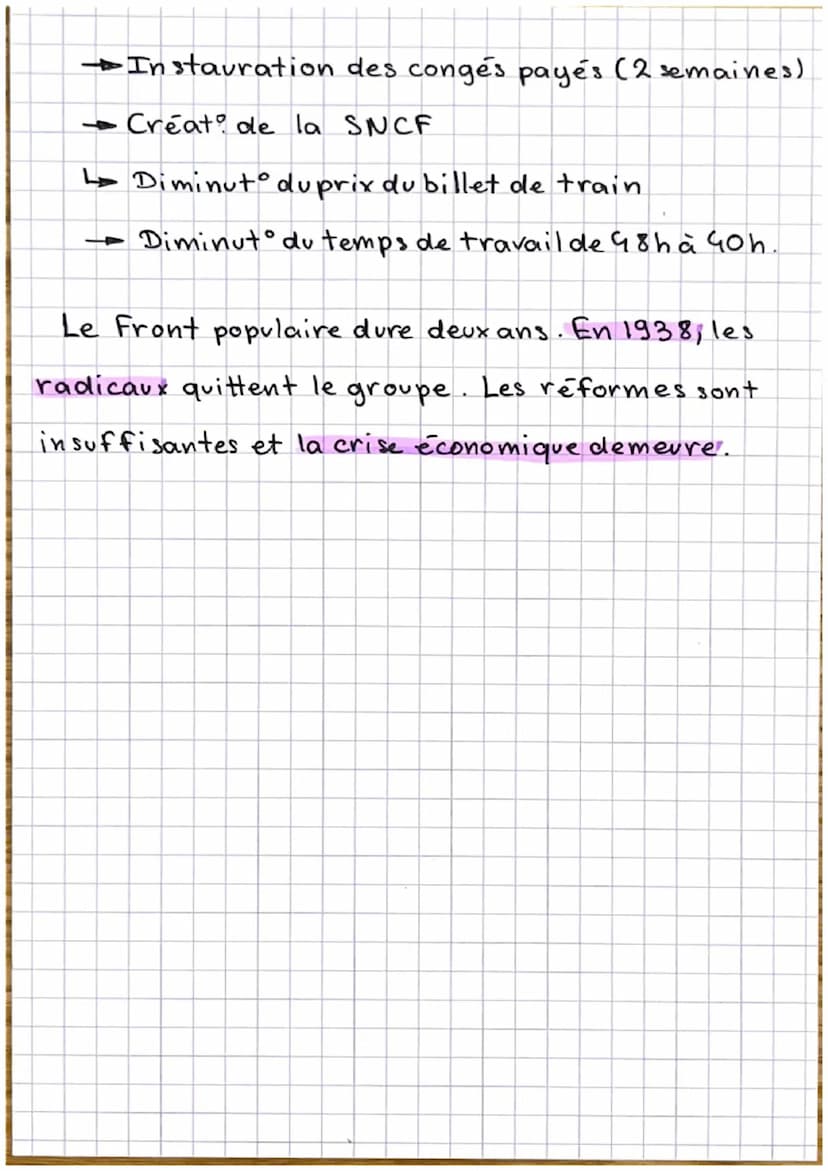 → Instauration des congés payés (2 semaines)
→ Créat° de la SNCF
↳ Diminut° du prix du billet de train
→ Diminut° du temps de travail de 48h à 40h.
Le Front populaire dure deux ans. En 1938, les
radicaux quittent le groupe. Les réformes sont
insuffisantes et la crise économique demeure.